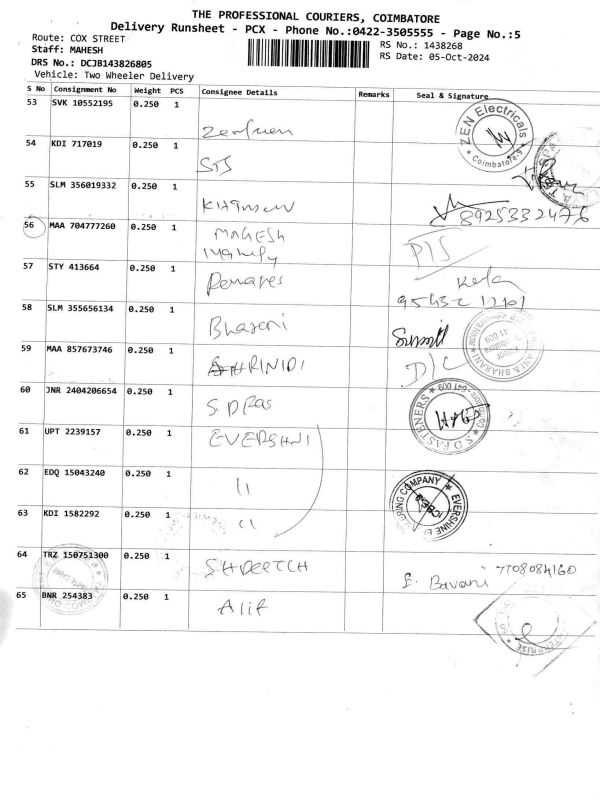 THE PROFESSIONAL COURIERS, COIMBATORE
Delivery Runsheet - PCX - Phone No.:0422-3505555 - Page No.:5
Route: COX STREET
RS No.: 1438268
Staff: MAHESH
RS Date: 05-Oct-2024
DRS No.: DCJB143826805
Vehicle: Two Wheeler Delivery
S No Consignment No Weight PCS Consignee Details Remarks Seal & Signature
53 SVK 10552195 0.250 1
ZEN Electricals
Coimbatore-9
54 KDI 717019 0.250 1 STS
55 SLM 356019332 0.250 1
8925332476
56 MAA 704777260 0.250 1 MAGESH
57 STY 413664 0.250 1
58 SLM 355656134 0.250 1 Bharani
& BHARANI
59 MAA 857673746 0.250 1 SHRINIDI D/C
60 JNR 2404206654 0.250 1 SDFAS
S D FASTENERS
61 UPT 2239157 0.250 1 EVERSHNI
62 EDQ 15043240 0.250 1 11
EVERSHINE
COMPANY
63 KDI 1582292 0.250 1 11
64 TRZ 150751300 0.250 1 7708084160
65 BNR 254383 0.250 1 Alif